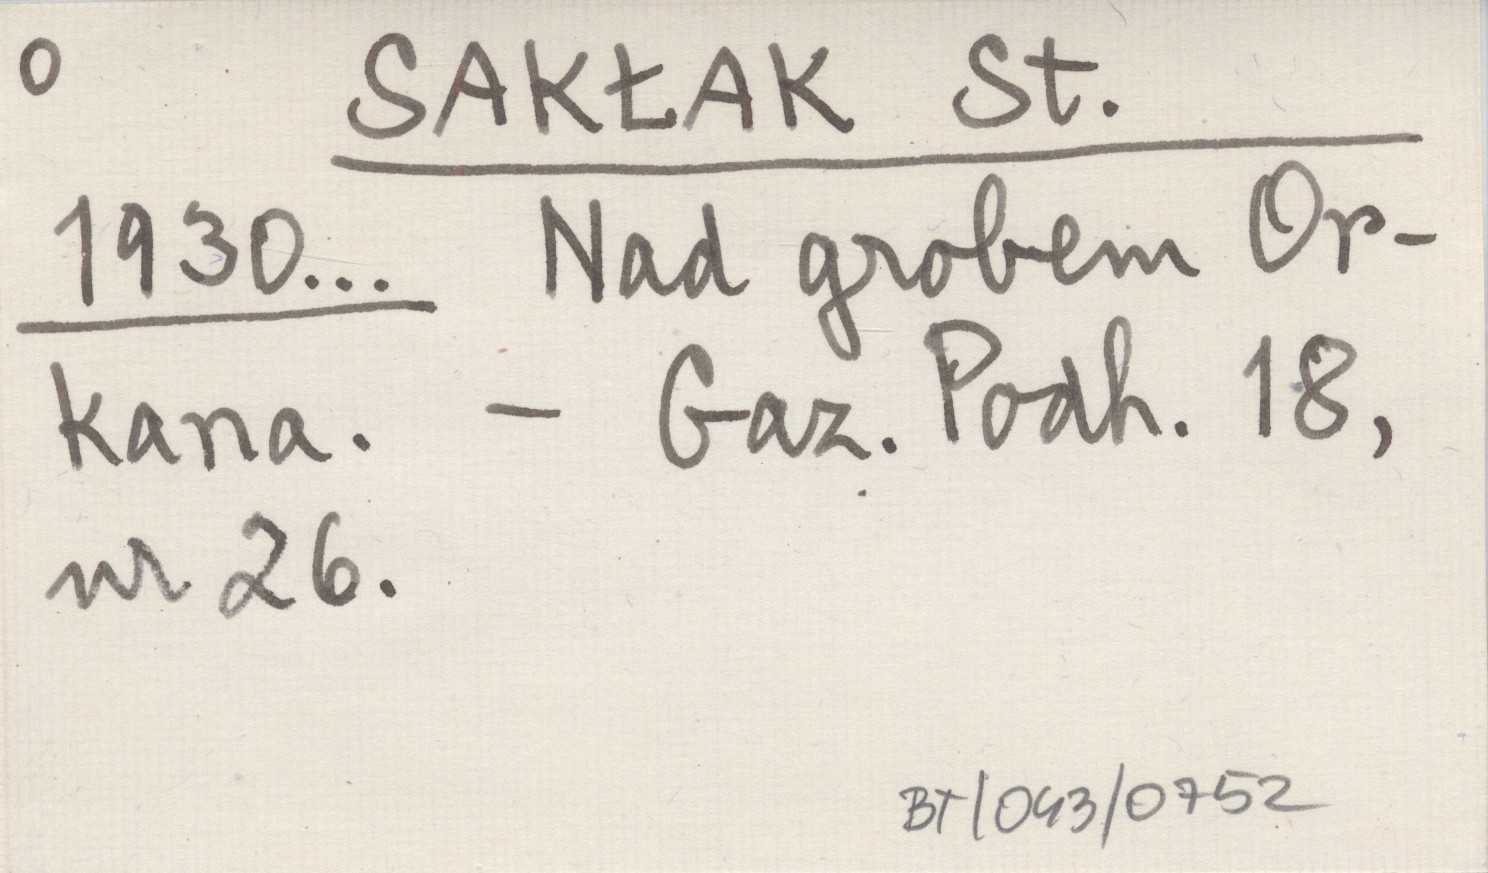 o SAKŁAK St.
1930... Nad grobem Or-
kana. - Gaz. Podh. 18,
nr 26.
BT/043/0752